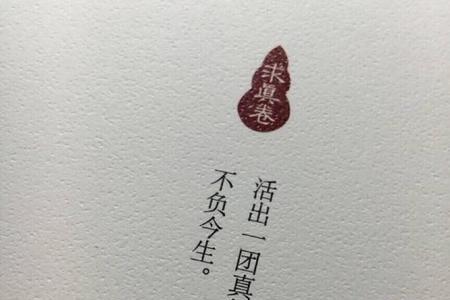 求真卷
活出一团真
不负今生。